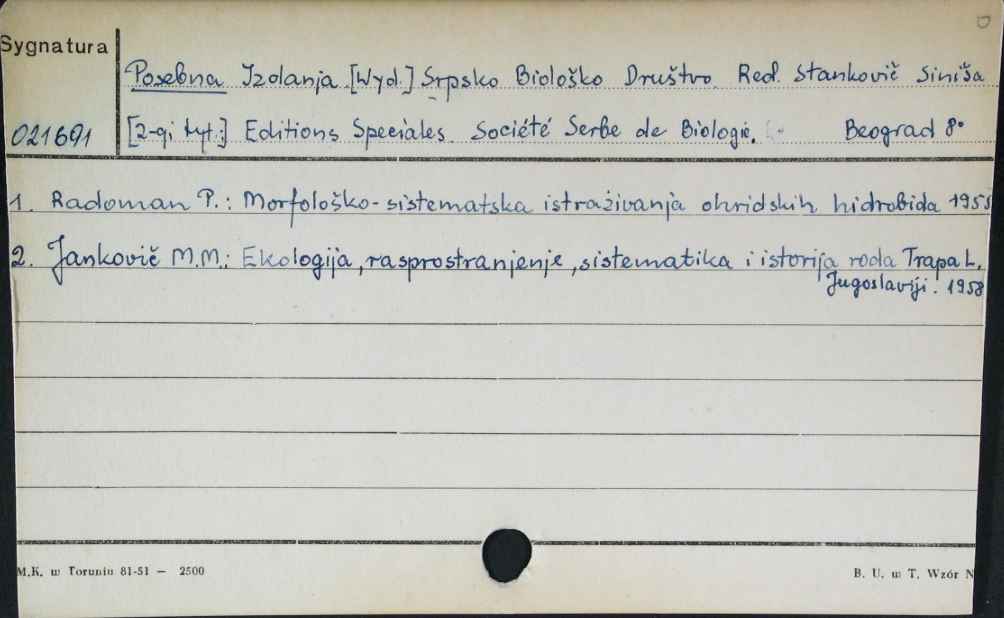 Sygnatura
Posebna Izdanja. [Wyd.] Srpsko Biološko Društvo. Red. Stankovič Siniša
021691 [2-gi tyt.:] Editions Speciales. Société Serbe de Biologie. Beograd 8°
1. Radoman P.: Morfološko-sistematska istraživanja ohridskih hidrobida 1955
2. Jankovič M.M.: Ekologija, rasprostranjenje, sistematika i istorija roda Trapa L.
Jugoslaviji. 1958
M.K. w Toruniu 81-51 — 2500 B. U. w T. Wzór N